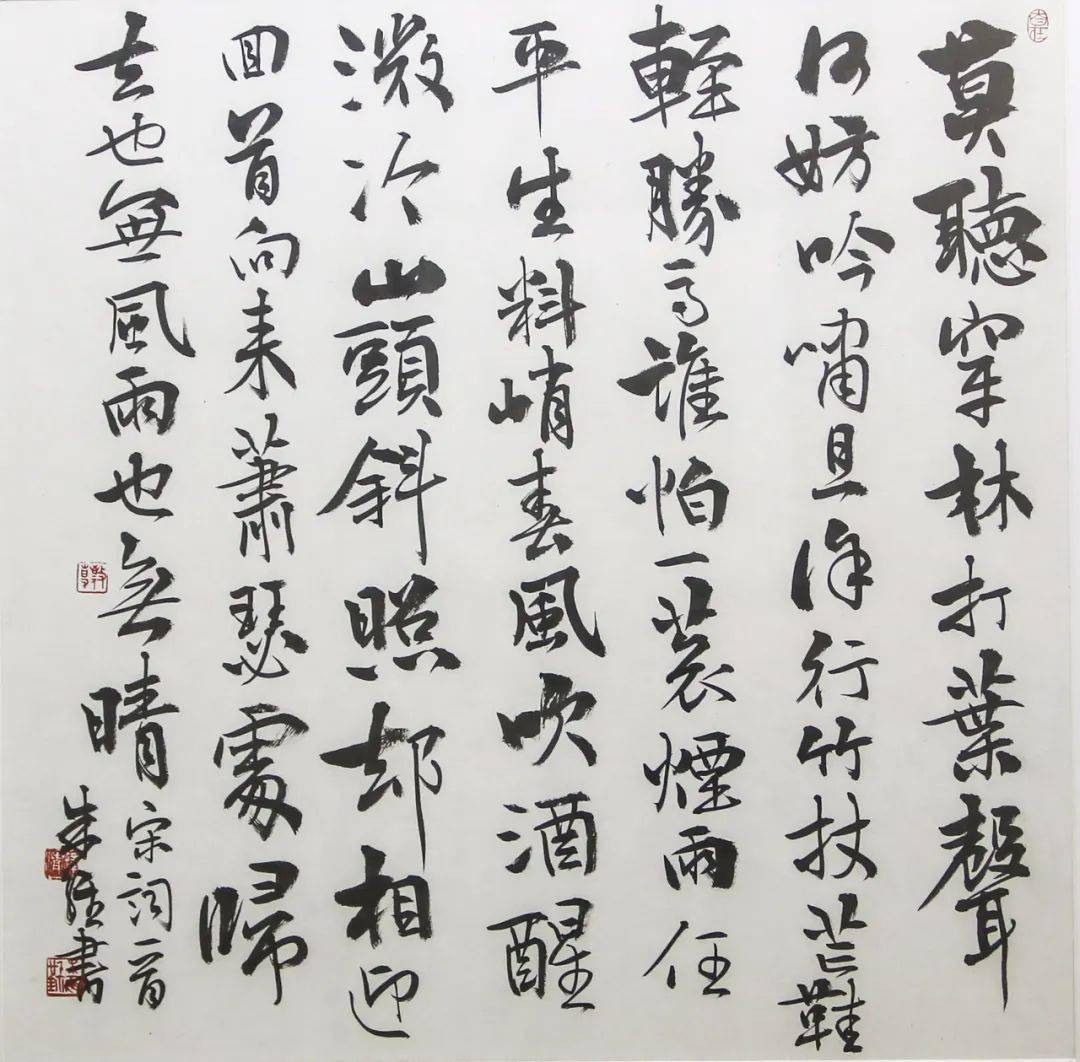 莫聽穿林打葉聲
何妨吟嘯且徐行竹杖芒鞋
輕勝馬誰怕一蓑煙雨任
平生料峭春風吹酒醒
微冷山頭斜照却相迎
回首向来蕭瑟處歸
去也無風雨也無晴
宋詞一首
朱書